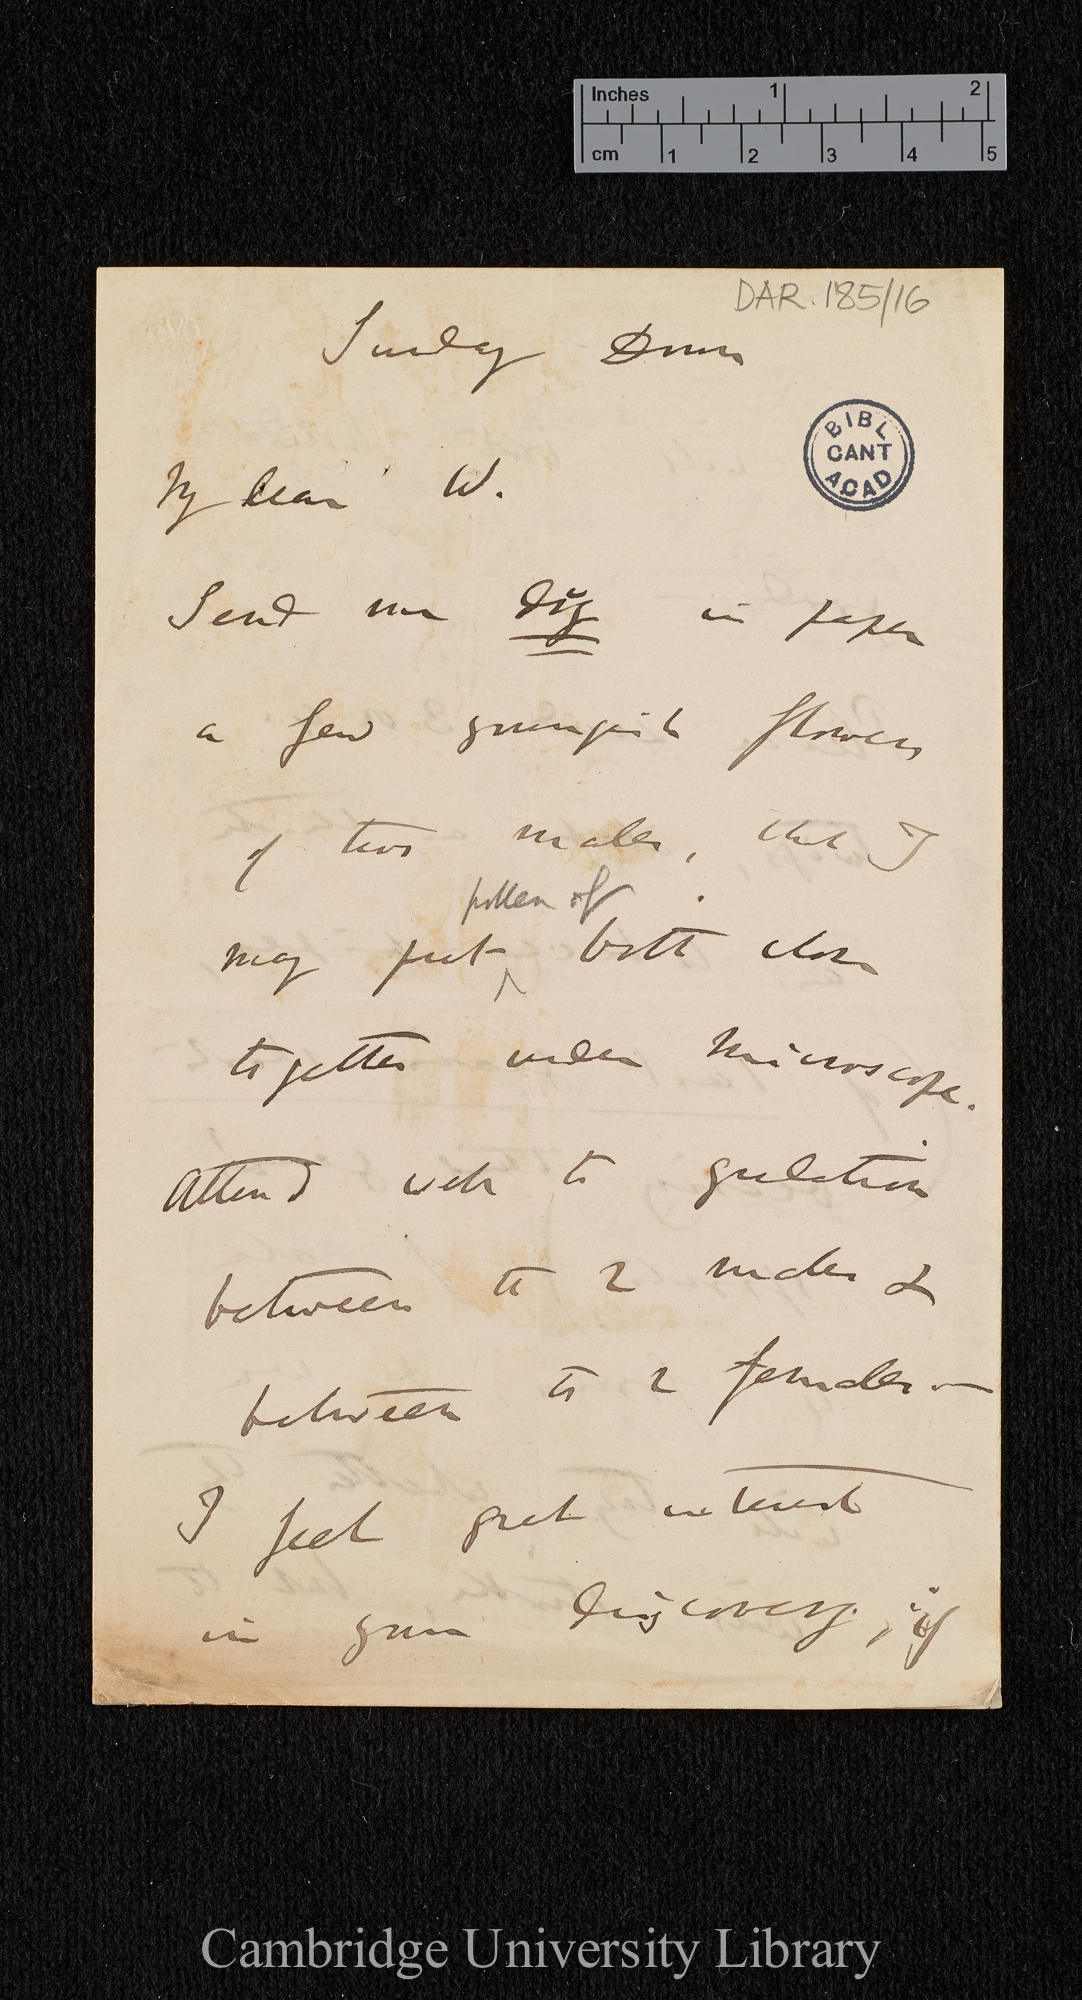 Inches 1 2
cm 1 2 3 4 5
DAR. 185/16
Sunday Down
BIBL
CANT
ACAD
My dear W.
Send me dry in paper
a few grumpish flowers
of two males, that I
pollen of
may put ^ both close
together under microscope.
Attend well to gradation
between the 2 males &
between the 2 females—
I feel great interest
in your discovery, if
Cambridge University Library